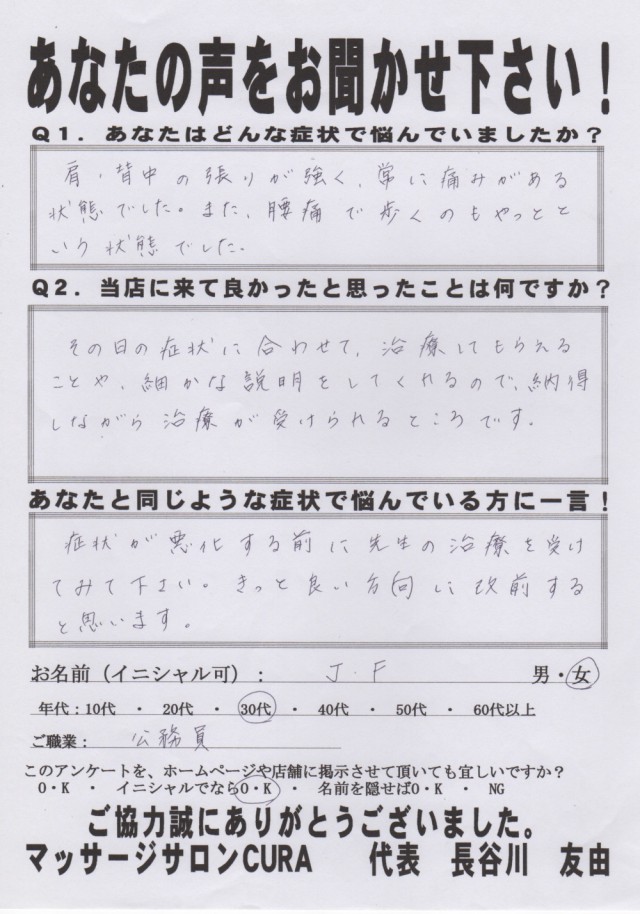 あなたの声をお聞かせ下さい！
Q1．あなたはどんな症状で悩んでいましたか？
肩・背中の張りが強く、常に痛みがある
状態でした。また、腰痛で歩くのもやっとと
いう状態でした。
Q2．当店に来て良かったと思ったことは何ですか？
その日の症状に合わせて、治療してもらえる
ことや、細かな説明をしてくれるので、納得
しながら治療が受けられるところです。
あなたと同じような症状で悩んでいる方に一言！
症状が悪化する前に先生の治療を受け
てみて下さい。きっと良い方向に改前する
と思います。
お名前（イニシャル可）： J・F 男・女
年代：10代 ・ 20代 ・ 30代 ・ 40代 ・ 50代 ・ 60代以上
ご職業： 公務員
このアンケートを、ホームページや店舗に掲示させて頂いても宜しいですか？
O・K ・ イニシャルでならO・K ・ 名前を隠せばO・K ・ NG
ご協力誠にありがとうございました。
マッサージサロンCURA 代表 長谷川 友由